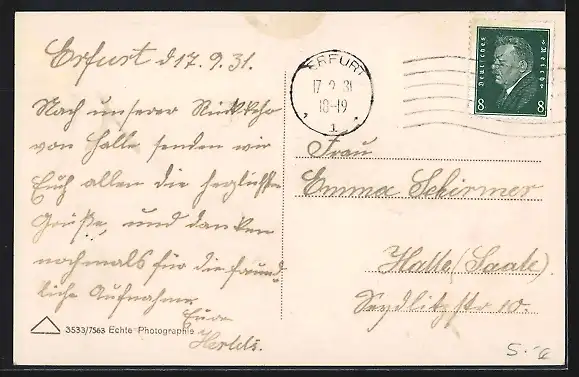 Erfurt d 17.9.31.
Nach unserer Rückkehr
von Halle senden wir
Euch allen die herzlichste
Grüße, und danken
nochmals für die freund
liche Aufnahme
Eure
3533/7563 Echte Photographie
ERFURT
17.9.31
18-19
1 1
Deutsches Reich
8 8
Frau
Emma Schirmer
Halle (Saale).
Seydlitzstr 10.